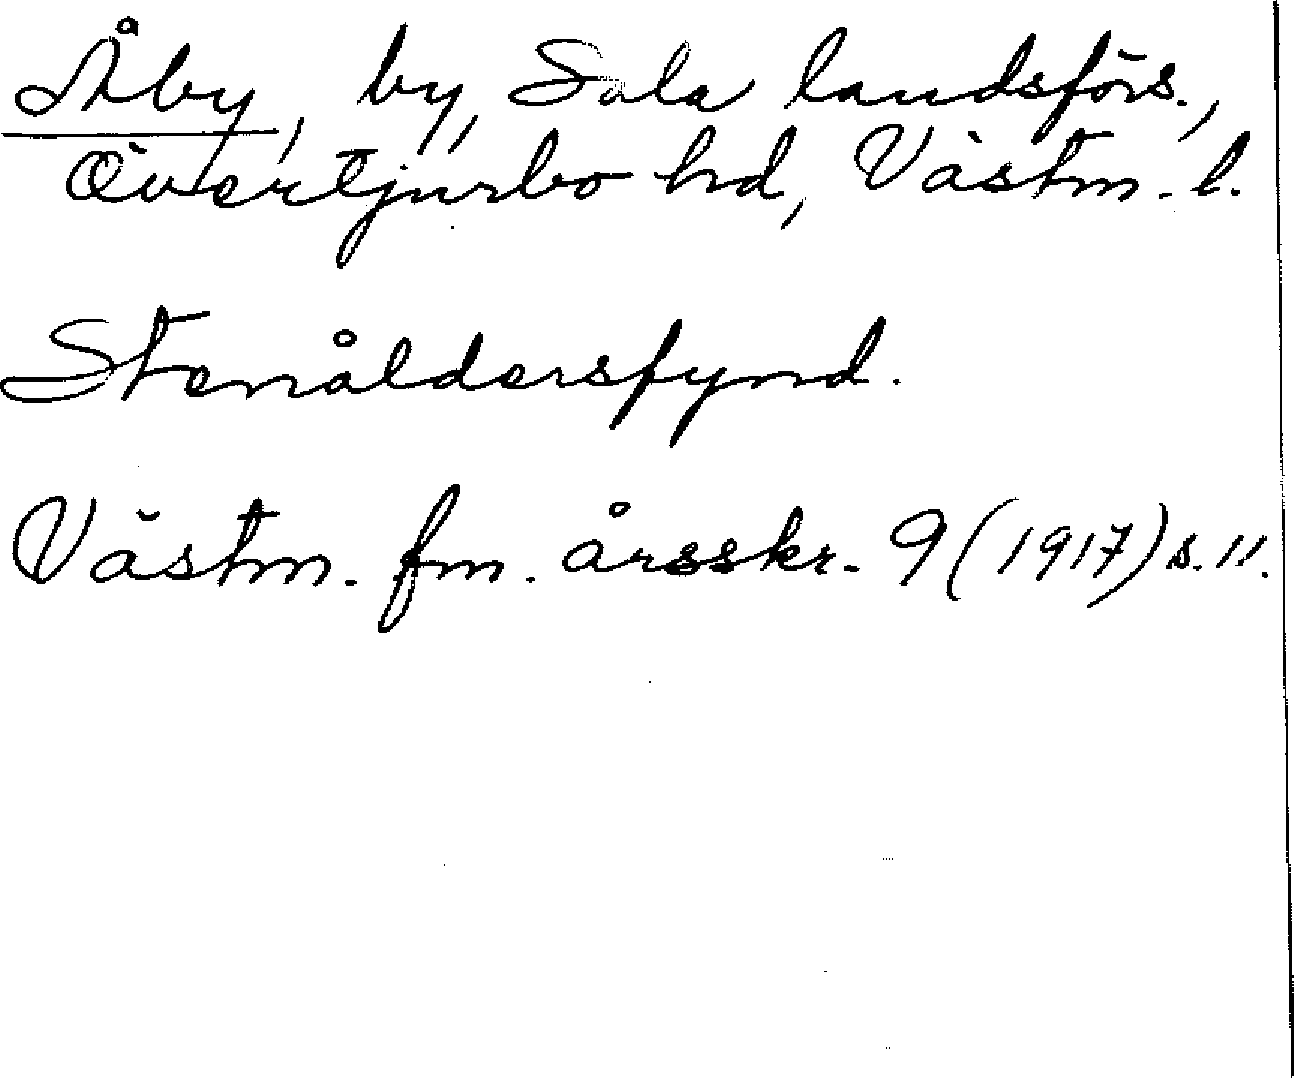 Åby, by, Sala landsförs.,
Övertjurbo hd, Västm. l.
Stenåldersfynd.
Västm. fm. årsskr. 9 (1917) s. 11.